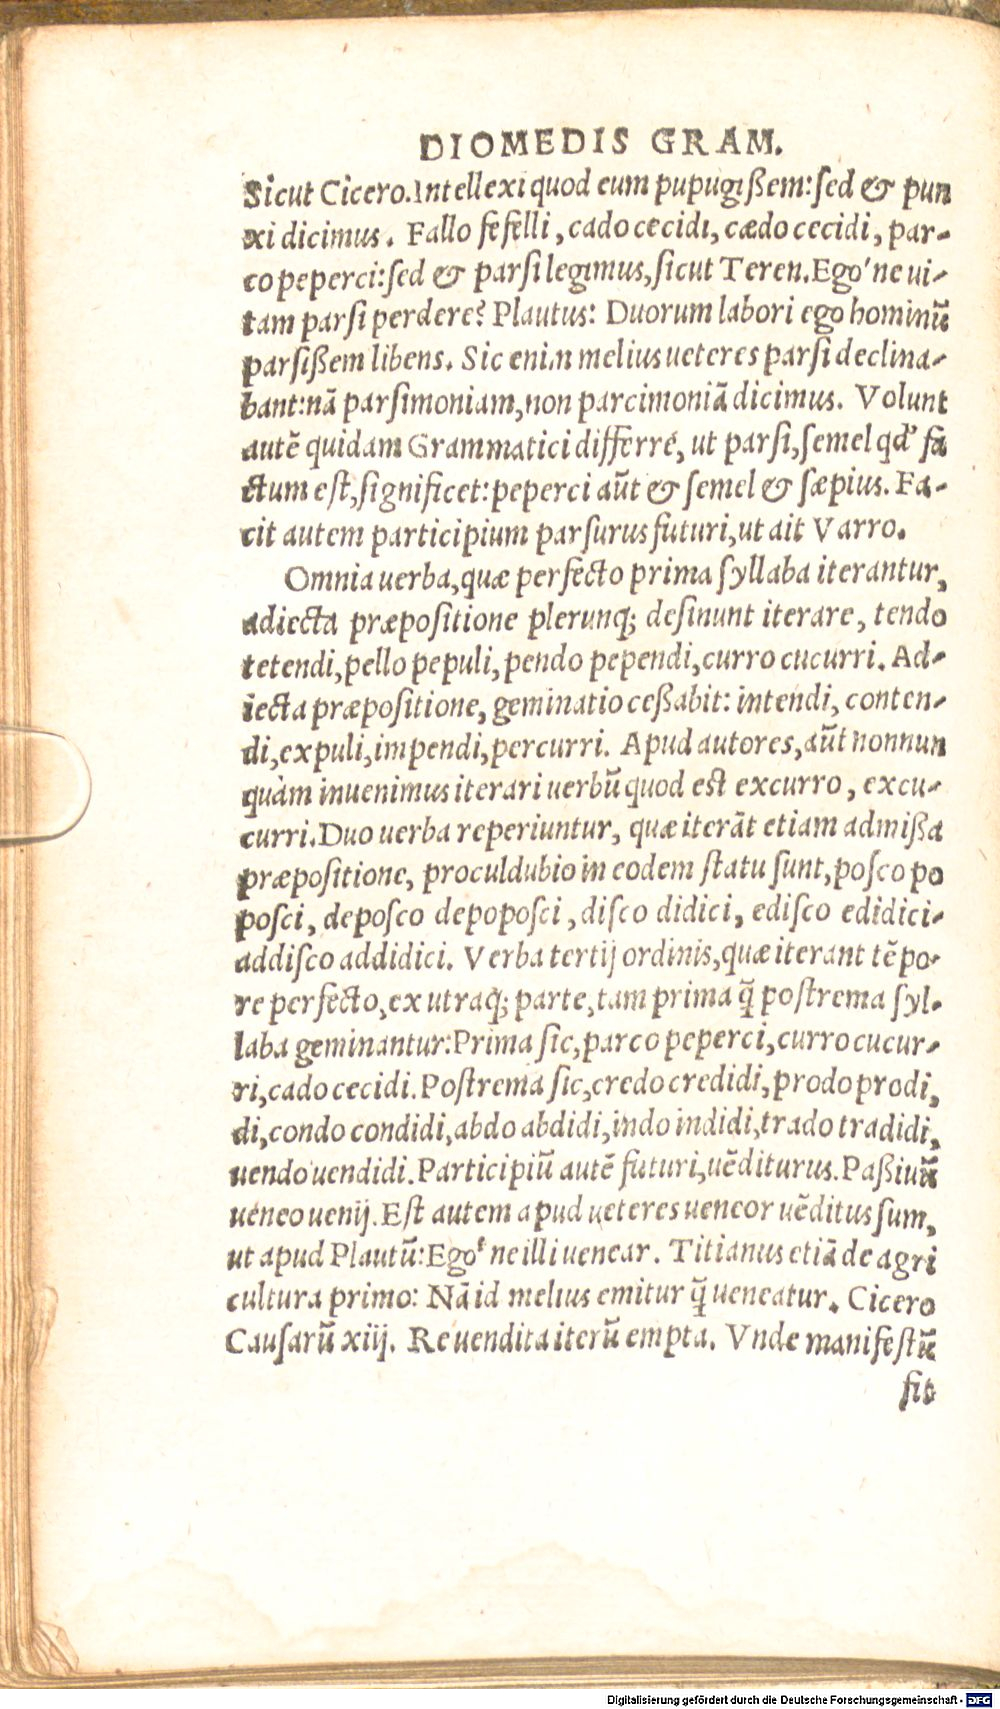 DIOMEDIS GRAM.
Sicut Cicero. Intellexi quod eum pupugißem: sed & pun
xi dicimus. Fallo fefelli, cado cecidi, cædo cecidi, par-
co peperci: sed & parsi legimus, sicut Teren. Ego' ne ui-
tam parsi perdere? Plautus: Duorum labori ego hominū
parsißem libens. Sic enim melius ueteres parsi declina-
bant: nā parsimoniam, non parcimoniā dicimus. Volunt
autē quidam Grammatici differre, ut parsi, semel qd' fa
ctum est, significet: peperci aūt & semel & sæpius. Fa-
cit autem participium parsurus futuri, ut ait Varro.
Omnia uerba, quæ perfecto prima syllaba iterantur,
adiecta præpositione plerunq; desinunt iterare, tendo
tetendi, pello pepuli, pendo pependi, curro cucurri. Ad-
iecta præpositione, geminatio ceßabit: intendi, conten-
di, expuli, impendi, percurri. Apud autores, aūt nonnun
quàm inuenimus iterari uerbū quod est excurro, excu-
curri. Duo uerba reperiuntur, quæ iterāt etiam admißa
præpositione, proculdubio in eodem statu sunt, posco po
posci, deposco depoposci, disco didici, edisco edidici-
addisco addidici. Verba tertij ordinis, quæ iterant tēpo-
re perfecto, ex utraq; parte, tam prima q̃ postrema syl-
laba geminantur: Prima sic, parco peperci, curro cucur-
ri, cado cecidi. Postrema sic, credo credidi, prodo prodi,
di, condo condidi, abdo abdidi, indo indidi, trado tradidi,
uendo uendidi. Participiū autē futuri, uēditurus. Paßiuū
uéneo uenij. Est autem apud ueteres ueneor uēditus sum,
ut apud Plautū: Ego' ne illi uenear. Titianus etiā de agri
cultura primo: Nā id melius emitur q̃ ueneatur. Cicero
Causarū xiij. Re uendita iterū empta. Vnde manifestū
sit
Digitalisierung gefördert durch die Deutsche Forschungsgemeinschaft - DFG